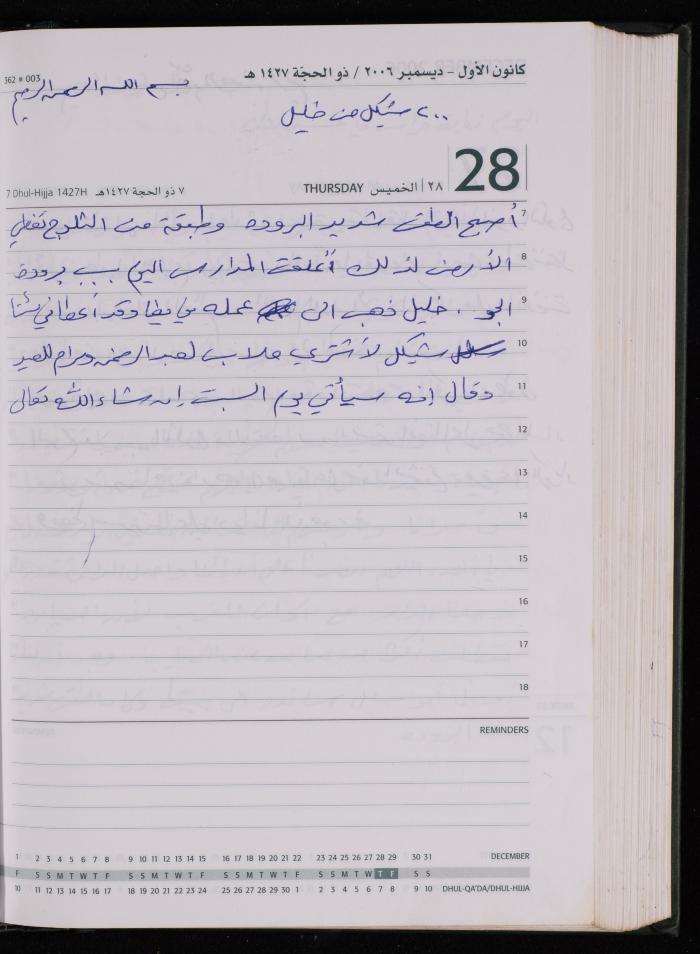 كانون الأول - ديسمبر ٢٠٠٦ / ذو الحجّة ١٤٢٧ هـ
362 * 003
بسم الله الرحمن الرحيم
٢٠٠ شيكل من خليل
28
٢٨ | الخميس THURSDAY
٧ ذو الحجة ١٤٢٧هـ 7 Dhul-Hijja 1427H
7 أصبح الطقس شديد البروده وطبقة من الثلوج تغطي
8 الأرض لذلك أغلقت المدارس اليوم بسبب برودة
9 الجو . خليل ذهب الى عمله في يطا وقد أعطاني
10 شيكل لأشتري ملابس لعبد الرحمن ومرام للعيد
11 وقال إنه سيأتي يوم السبت إن شاء الله تعالى
12
13
14
15
16
17
18
REMINDERS
1 2 3 4 5 6 7 8 9 10 11 12 13 14 15 16 17 18 19 20 21 22 23 24 25 26 27 28 29 30 31 DECEMBER
F S S M T W T F S S M T W T F S S M T W T F S S M T W T F S S
10 11 12 13 14 15 16 17 18 19 20 21 22 23 24 25 26 27 28 29 30 1 2 3 4 5 6 7 8 9 10 DHUL-QA'DA/DHUL-HIJJA